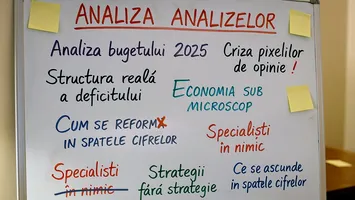 ANALIZA ANALIZELOR
Analiza bugetului 2025
Criza pixelilor
de opinie !
Structura reală
a deficitului
ECONOMIA SUB
MICROSCOP
CUM SE REFORMX
IN SPATELE CIFRELOR
Specialisti
in nimic
Specialisti
în nimic
Strategii
fără strategie
Ce se ascunde
in spatele cifrelor